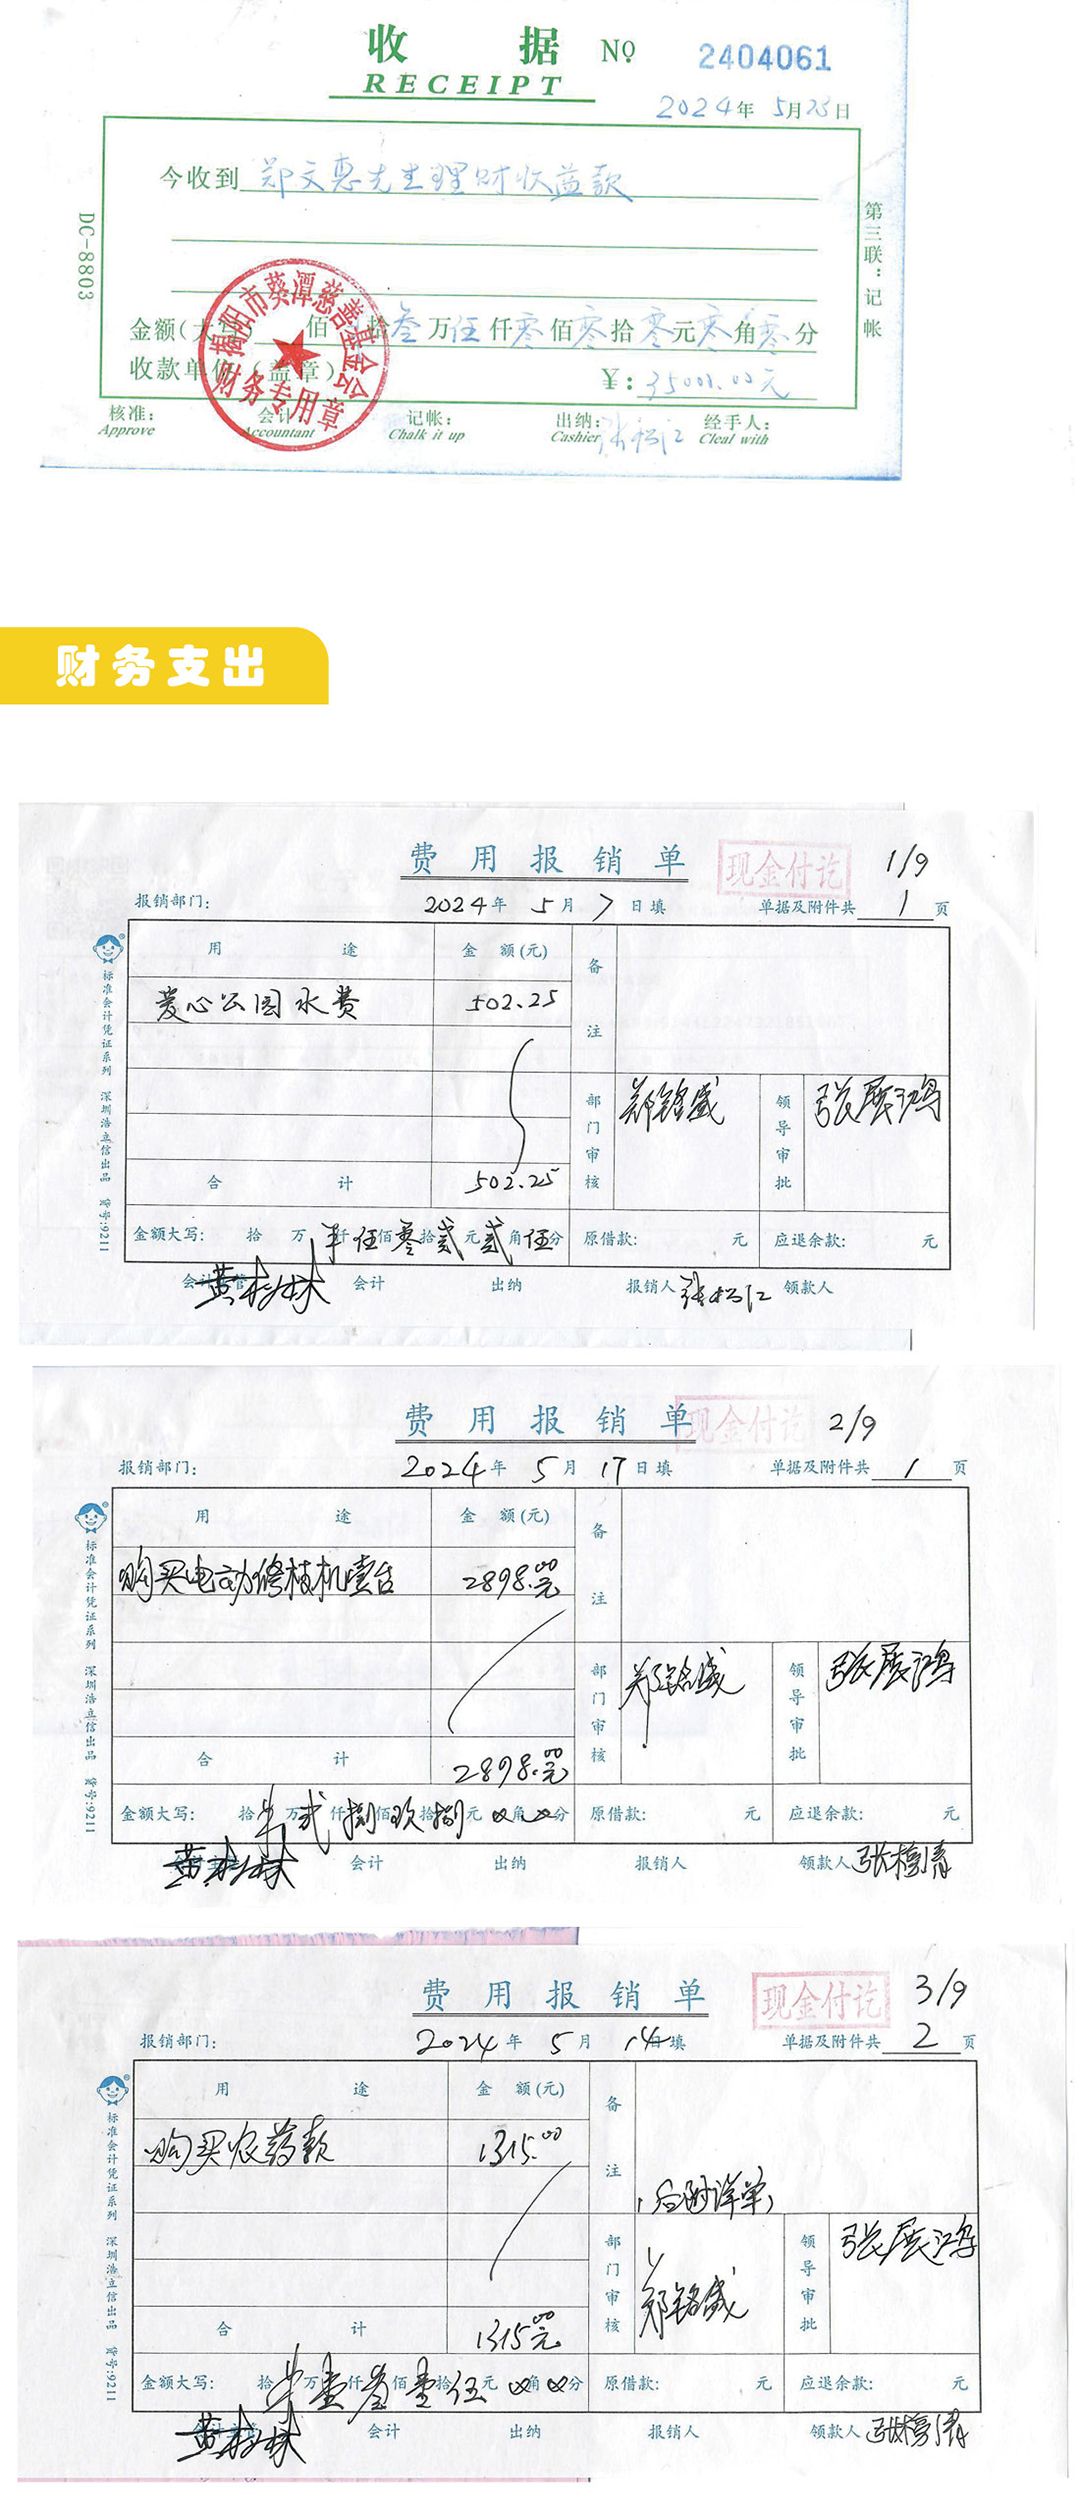 收 据 Nº 2404061
RECEIPT
2024年 5月23日
今收到 郑文惠先生理财收益款
DC-8803
第三联：记帐
金额(大 佰 拾叁万伍仟零佰零拾零元零角零分
收款单位(盖章)
¥: 35000.00元
揭阳市葵潭慈善基金会
财务专用章
核准: 会计 记帐: 出纳: 经手人:
Approve Accountant Chalk it up Cashier Cleal with
财务支出
费用报销单 现金付讫 1/9
报销部门: 2024年 5月 7日填 单据及附件共 1 页
用 途 金 额(元) 备注
爱心公园水费 502.25
部门审核 郑铭盛 领导审批 张展鸿
合 计 502.25
金额大写: 拾 万 仟伍佰零拾贰元贰角伍分 原借款: 元 应退余款: 元
会计 出纳 报销人 领款人
标准会计凭证系列 深圳浩立信出品 货号:9211
费用报销单 现金付讫 2/9
报销部门: 2024年 5月 17日填 单据及附件共 1 页
用 途 金 额(元) 备注
购买电动修枝机壹台 2898.00元
部门审核 郑铭盛 领导审批 张展鸿
合 计 2898.00元
金额大写: 拾 万贰仟捌佰玖拾捌元 角 分 原借款: 元 应退余款: 元
会计 出纳 报销人 领款人
标准会计凭证系列 深圳浩立信出品 货号:9211
费用报销单 现金付讫 3/9
报销部门: 2024年 5月 14日填 单据及附件共 2 页
用 途 金 额(元) 备注
购买农药款 1315.00
(后附详单)
部门审核 郑铭盛 领导审批 张展鸿
合 计 1315.00元
金额大写: 拾 万壹仟叁佰壹拾伍元 角 分 原借款: 元 应退余款: 元
会计 出纳 报销人 领款人
标准会计凭证系列 深圳浩立信出品 货号:9211